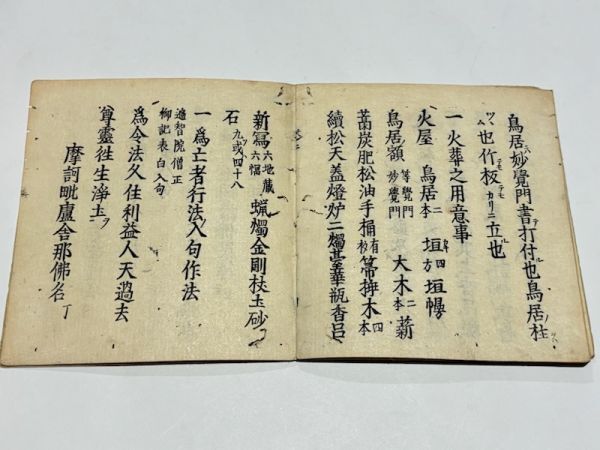 鳥居ニハ妙覺門書テ打付ル也鳥居ノ柱ハ
ツム也作板ニテモ カリニ立ル也
一火葬之用意事
火屋 鳥居二本 垣四方 垣幔
鳥居ノ額 等覺門 妙覺門 大木二本 薪
藁炭肥松油手桶有杓箒揷木四本
續松天蓋燈炉二燭臺華瓶香呂
新冩六地蔵六幅 蝋燭金剛杖土砂
石九ツ或四十八
一為亡者行法入句作法
遍智院僧正
柳記表白入句
為令法久住利益人天過去
尊靈往生淨土ヲ
摩訶毗盧舍那佛名丁